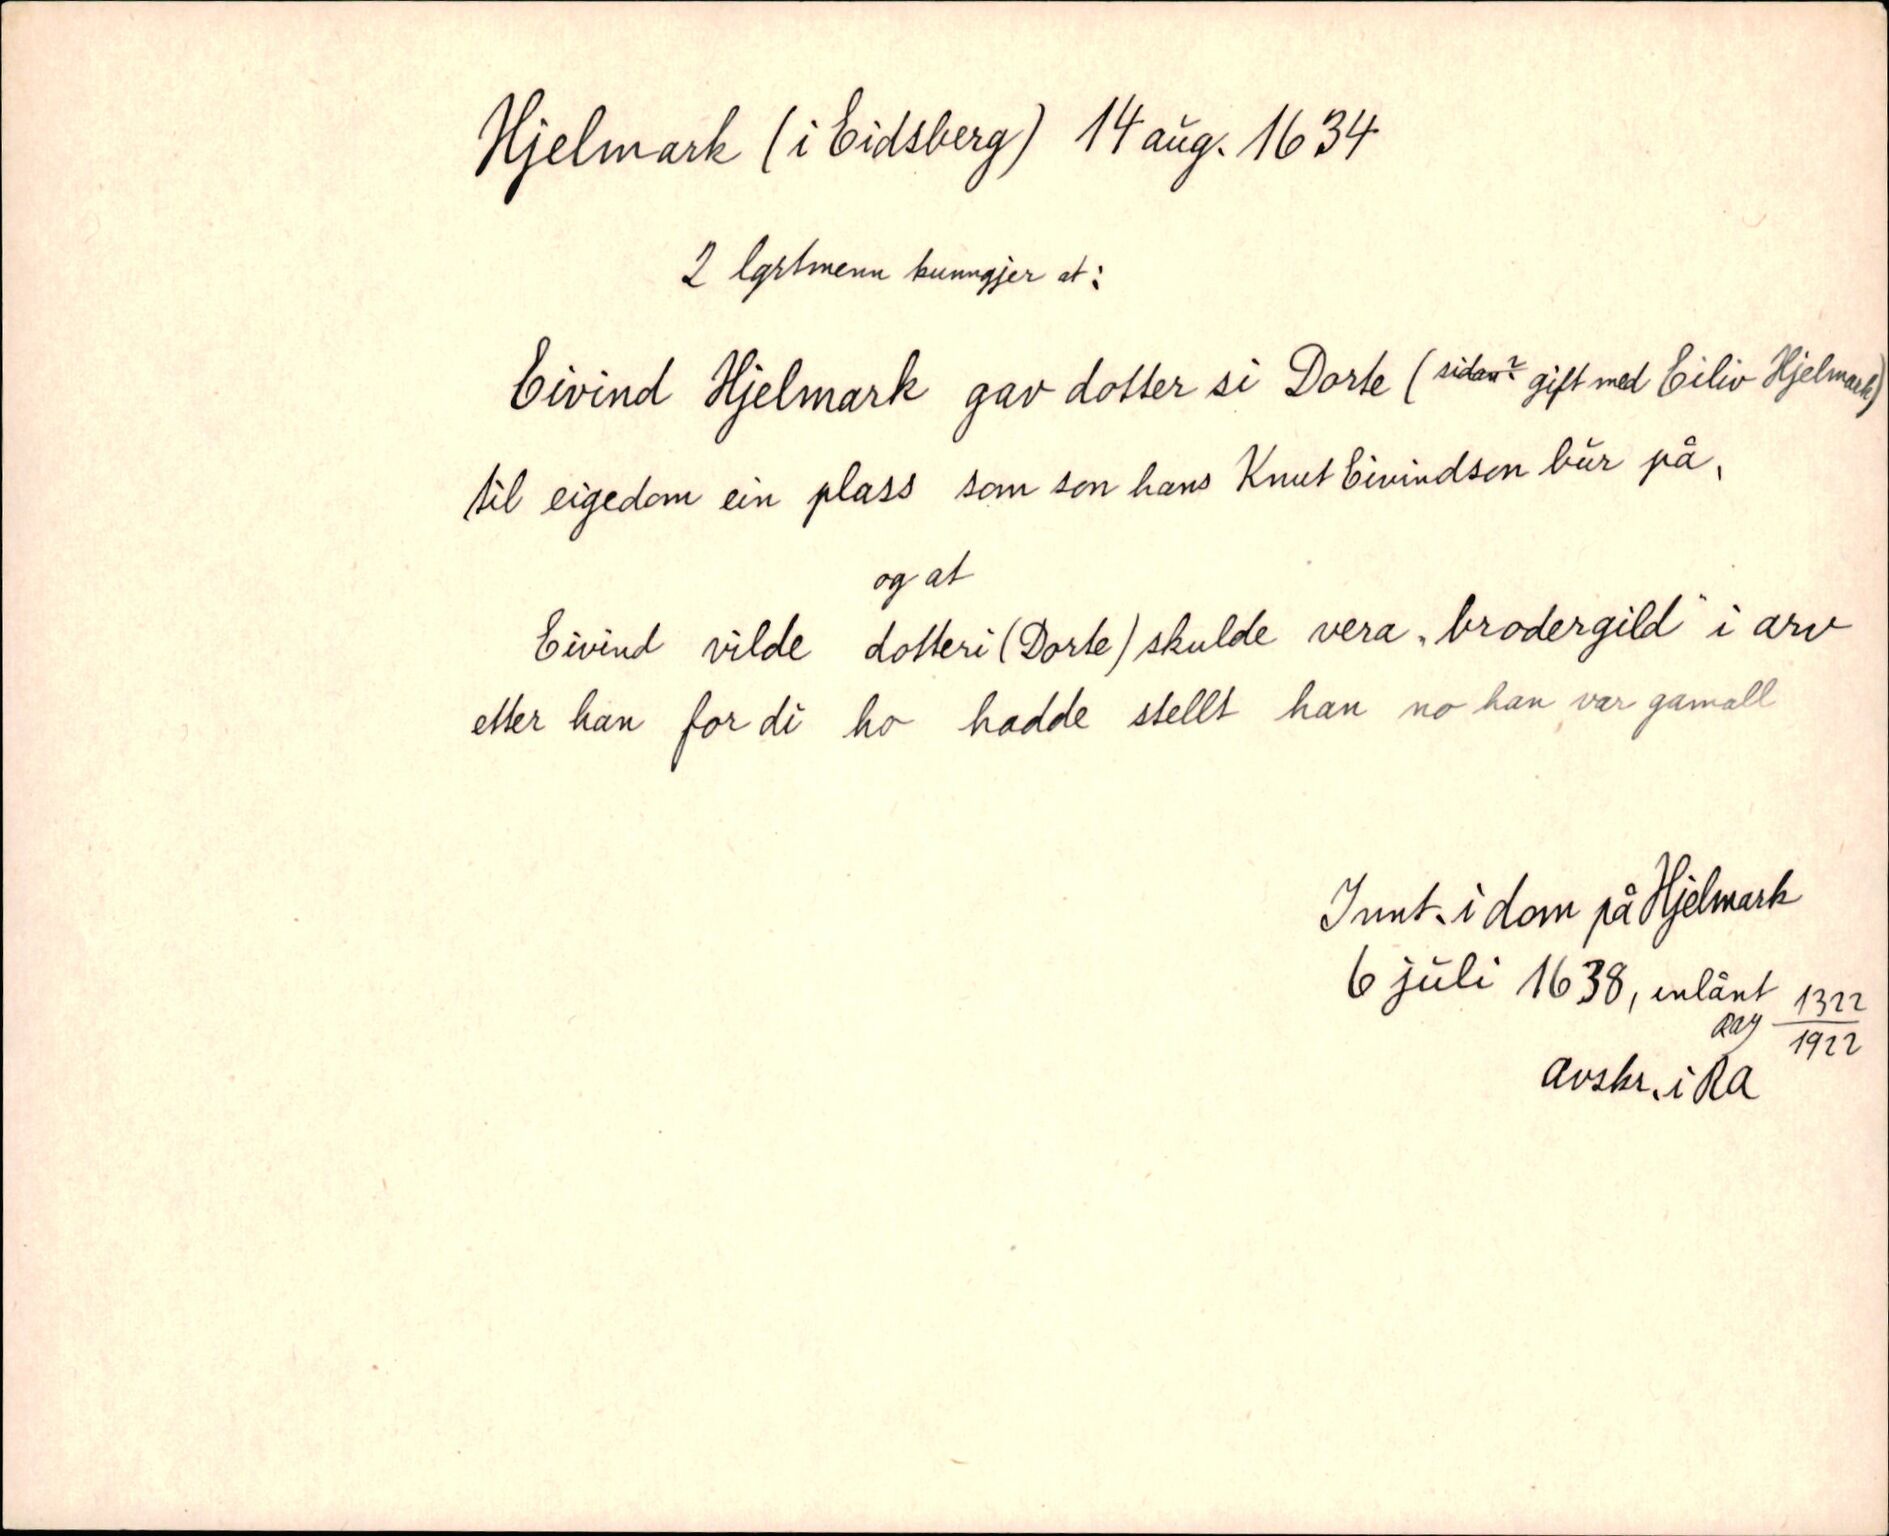 Hjelmark (i Eidsberg) 14 aug. 1634
2 lgrtmenn kunngjer at:
Eivind Hjelmark gav dotter si Dorte (sidan? gift med Eiliv Hjelmark)
til eigedom ein plass som son hans Knut Eivindson bur på,
og at
Eivind vilde dotteri (Dorte) skulde vera „brodergild" i arv
etter han for di ho hadde stellt han no han var gamall
Innt. i dom på Hjelmark
6 juli 1638, inlånt 1322
RAy 1922
Avskr. i RA